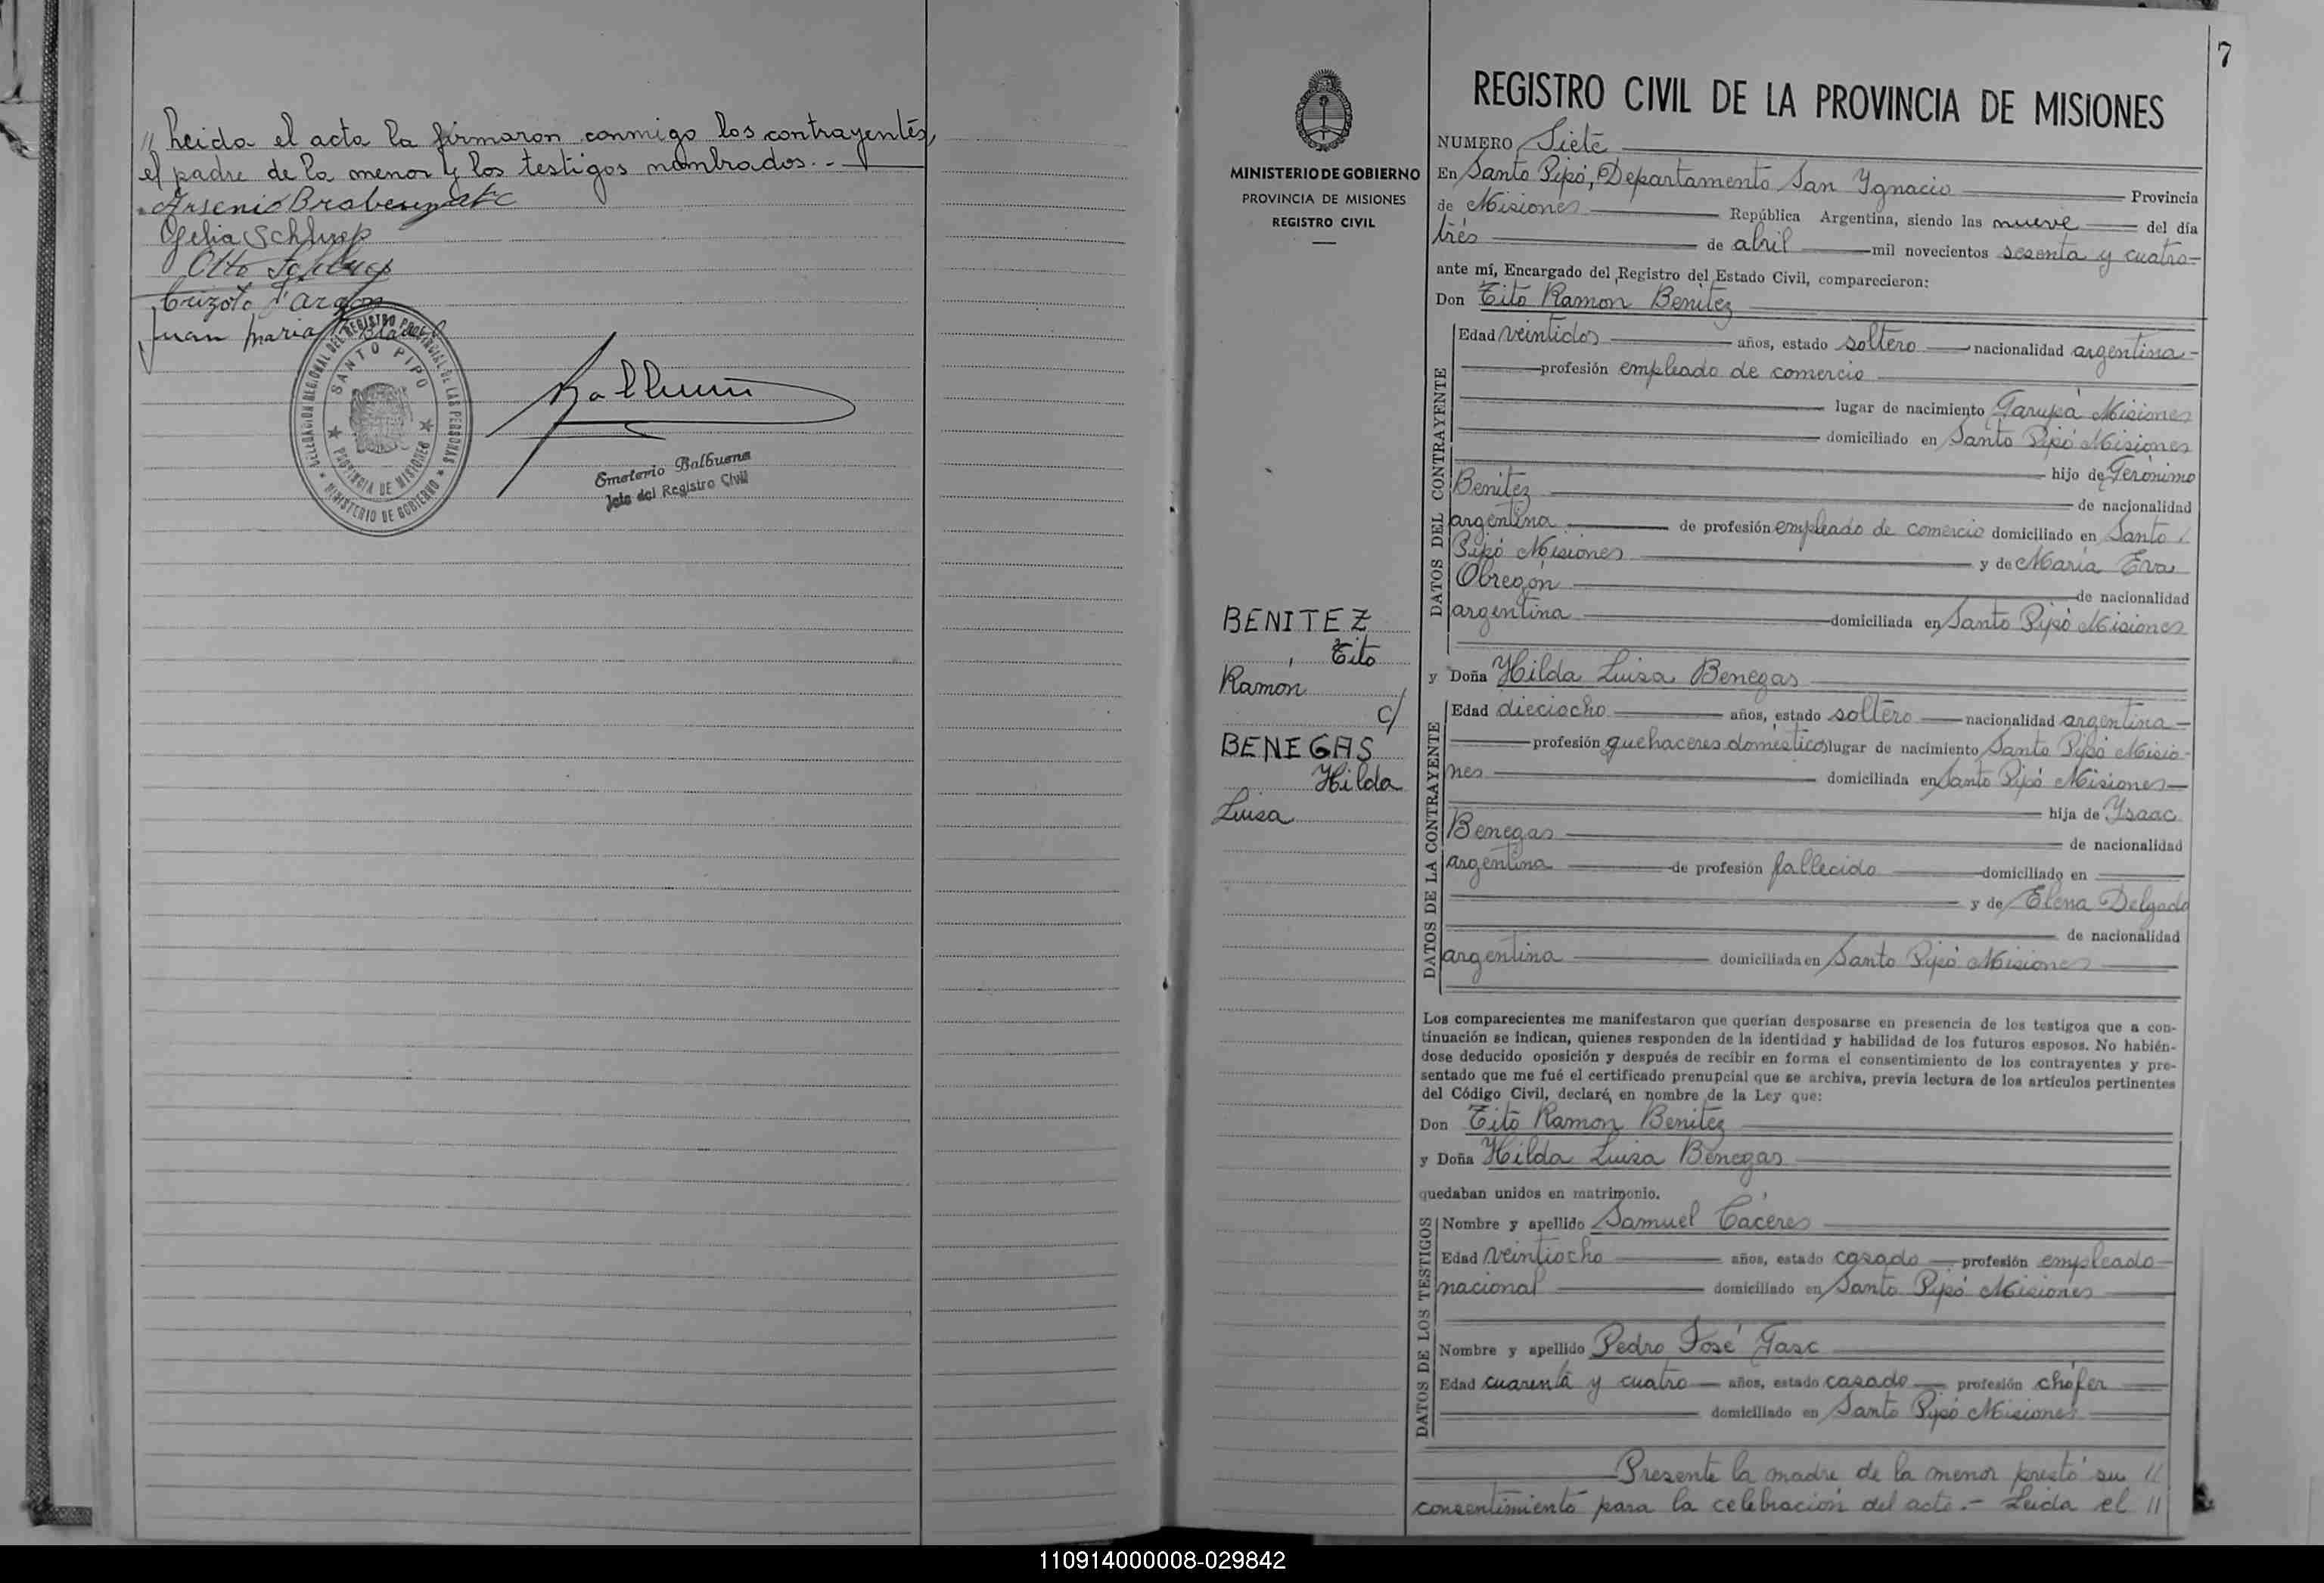 // Leida el acta la firmaron conmigo los contrayentes,
el padre de la menor y los testigos nombrados.-
Ofelia Schlup
Otto Schlup
Juan Maria
DELEGACION REGIONAL DEL REGISTRO PROVINCIAL DE LAS PERSONAS
SANTO PIPO
PROVINCIA DE MISIONES
MINISTERIO DE GOBIERNO
Emeterio Balbuena
Jefe del Registro Civil
7
MINISTERIO DE GOBIERNO
PROVINCIA DE MISIONES
REGISTRO CIVIL
BENITEZ
Tito
Ramon
c/
BENEGAS
Hilda
Luisa
REGISTRO CIVIL DE LA PROVINCIA DE MISIONES
NUMERO Siete
En Santo Pipó, Departamento San Ygnacio Provincia
de Misiones República Argentina, siendo las nueve del día
trés de abril mil novecientos sesenta y cuatro-
ante mí, Encargado del Registro del Estado Civil, comparecieron:
Don Tito Ramon Benitez
DATOS DEL CONTRAYENTE
Edad veintidos años, estado soltero nacionalidad argentina-
profesión empleado de comercio
lugar de nacimiento Garupá Misiones
domiciliado en Santo Pipó Misiones
hijo de Gerónimo
Benitez de nacionalidad
argentina de profesión empleado de comercio domiciliado en Santo
Pipó Misiones y de María Eva
Obregón de nacionalidad
argentina domiciliada en Santo Pipó Misiones
y Doña Hilda Luisa Benegas
DATOS DE LA CONTRAYENTE
Edad dieciocho años, estado soltero nacionalidad argentina-
profesión quehaceres domésticos lugar de nacimiento Santo Pipó Misio-
nes domiciliada en Santo Pipó Misiones
hija de Ysaac
Benegas de nacionalidad
argentina de profesión fallecido domiciliado en
y de Elena Delgado
de nacionalidad
argentina domiciliada en Santo Pipó Misiones
Los comparecientes me manifestaron que querían desposarse en presencia de los testigos que a con-
tinuación se indican, quienes responden de la identidad y habilidad de los futuros esposos. No habién-
dose deducido oposición y después de recibir en forma el consentimiento de los contrayentes y pre-
sentado que me fué el certificado prenupcial que se archiva, previa lectura de los artículos pertinentes
del Código Civil, declaré, en nombre de la Ley que:
Don Tito Ramon Benitez
y Doña Hilda Luisa Benegas
quedaban unidos en matrimonio.
DATOS DE LOS TESTIGOS
Nombre y apellido Samuel Cáceres
Edad veintiocho años, estado casado profesión empleado
nacional domiciliado en Santo Pipó Misiones
Nombre y apellido Pedro José Gasc
Edad cuarenta y cuatro años, estado casado profesión chófer
domiciliado en Santo Pipó Misiones
Presente la madre de la menor prestó su //
consentimiento para la celebración del acto.- Leida el //
110914000008-029842